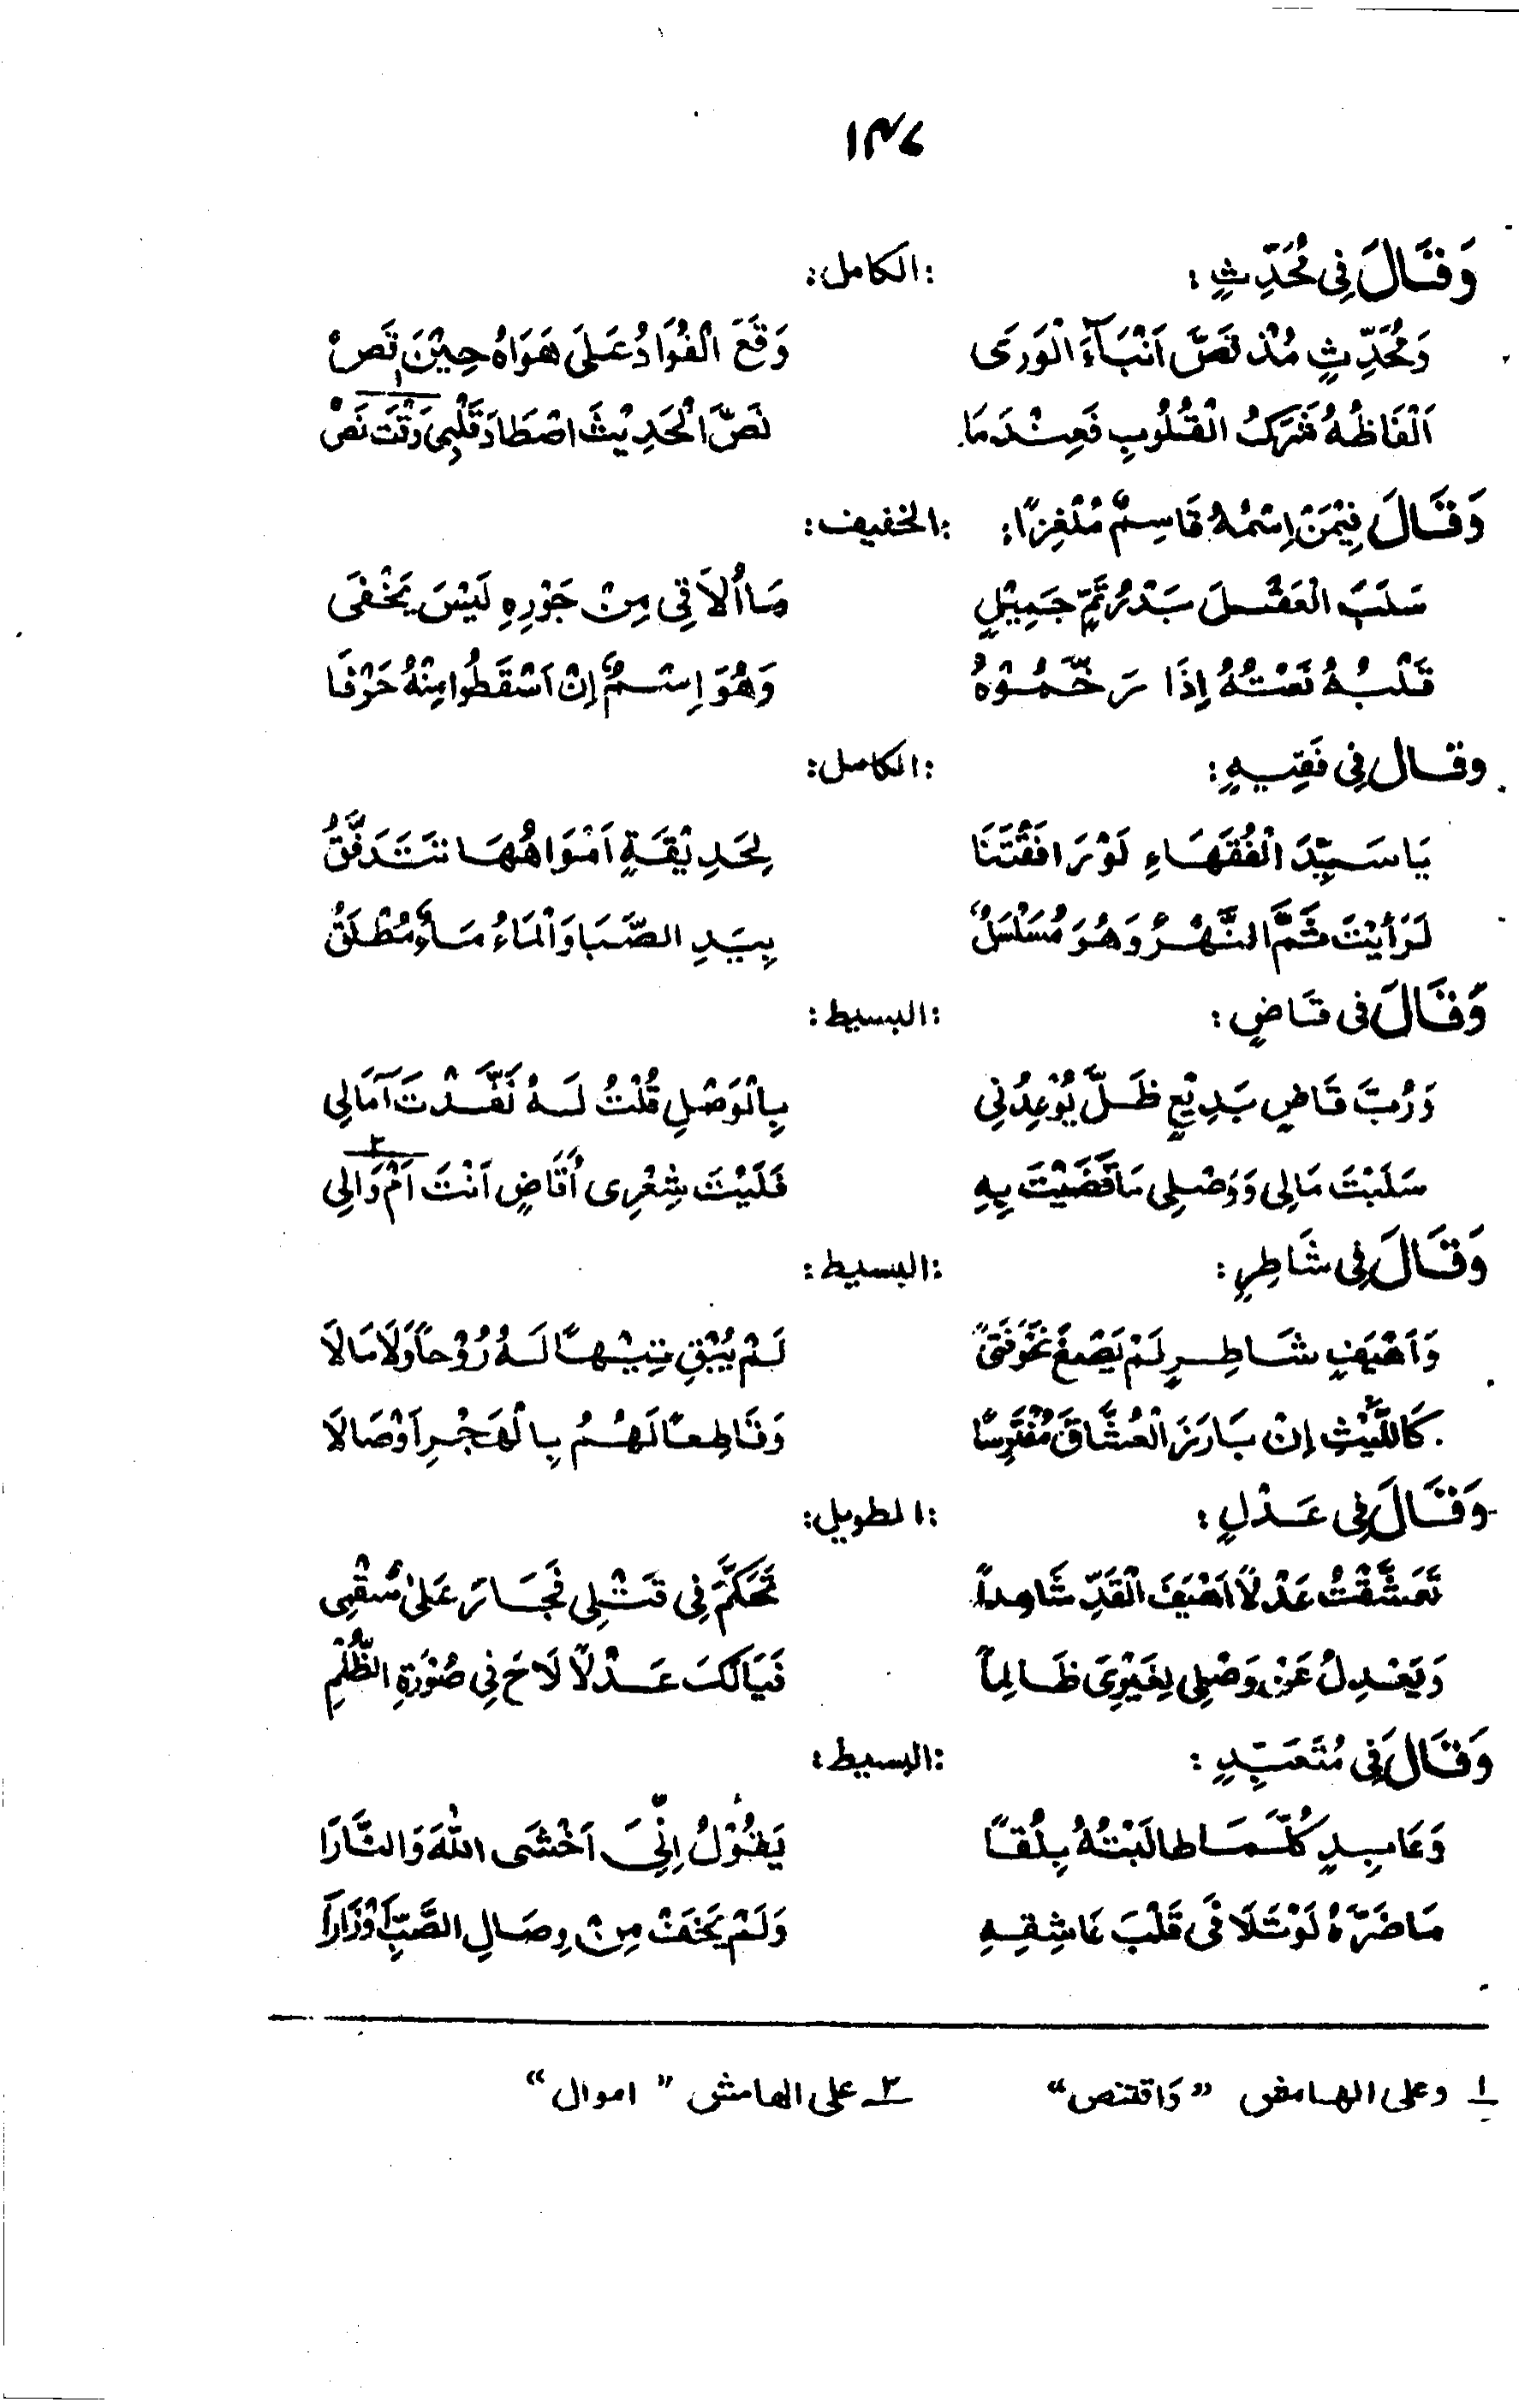 ١٣٧
وَقَالَ فِى مُحَدِّثٍ : :الكامل:
وَمُحَدِّثٍ مُذْ نَصَّ اَنْبَآءَ الْوَرَى وَقَعَ الْفُوَادُ عَلَى هَوَاهُ حِيْنَ نَصْ
اَلْفَاظُهُ شَرَكُ الْقُلُوبِ فَعِنْدَمَا نَصَّ الْحَدِيْثَ اصْطَادَ قَلْبِى وَقْتَ نَصْ ١
وَقَالَ فِيْمَنْ اِسْمُهُ قَاسِمٌ مُلْغِزًا: :الخفيف:
سَلَبَ الْعَقْلَ بَدْرُ تَمٍّ جَمِيْلٍ مَا اُلَاقِى مِنْ جَوْرِهِ لَيْسَ يَخْفَى
قَلْبُهُ نَعْتُهُ اِذَا رَخَّمُوْهُ وَهُوَ اِسْمٌ اِنْ اَسْقَطُوا مِنْهُ حَرْفَا
وقال فِى فَقِيهٍ : :الكامل:
يَا سَيِّدَ الْفُقَهَاءِ لَوْ رَافَقْتَنَا لِحَدِيْقَةٍ اَمْوَاهُهَا تَتَدَفَّقُ
لَرَأيْتَ ثَمَّ النَّهْرُ وَهُوَ مُسَلْسَلٌ بِيَدِ الصَّبَا وَالْمَاءُ مَاءٌ مُطْلَقُ
وَقَالَ فى قَاضٍ : :البسيط:
وَرُبَّ قَاضٍ بَدِيْعٍ ظَلَّ يُوْعِدُنِى بِالْوَصْلِ قُلْتُ لَهُ نَفَّدْتَ آمَالِى
سَلَبْتَ مَالِى وَوَصْلِى مَا قَضَيْتَ بِهِ فَلَيْتَ شِعْرِى أَقَاضٍ اَنْتَ اَمْ وَالِى ٢
وَقَالَ فِى شَاطِرٍ : :البسيط:
وَاَهْيَفٍ شَاطِرٍ لَمْ يَصْغَ نَحْوَ فَتًى لَمْ يُبْقِ تِيْهًا لَهُ رُوْحًا وَلَا مَالَا
كَاللَّيْثِ اِنْ بَارَزَ الْعُشَّاقَ مُفْتَرِسًا وَقَاطِعًا لَهُمُ بِالْهَجْرِ اَوْصَالَا
وَقَالَ فِى عَدْلٍ : :الطويل:
تَعَشَّقْتُ عَدْلًا اَهْيَفَ الْقَدِّ شَاهِداً تَحَكَّمَ فِى قَتْلِى فَجَارَ عَلَىٰ سُقْمِى
وَيَعْدِلُ عَنْ وَصْلِى لِغَيْرِىَ ظَالِماً فَيَا لَكَ عَدْلًا لَاحَ فِى صُوْرَةِ الظُّلْمِ
وَقَالَ فِى مُتَعَبِّدٍ : :البسيط:
وَعَابِدٍ كُلَّمَا طالَبْتُهُ بِلُقًا يَقُوْلُ اِنِّىَ اَخْشَى اللّٰهَ وَالنَّارَا
مَا ضَرَّهُ لَوْ تَلَافَى قَلْبَ عَاشِقِهِ وَلَمْ يَخَفْ مِنْ وِصَالِ الصَّبِّ اَوْزَارَا
١ وعلى الهامش “وَاقتنص” ٢ـ على الهامش “اموال”